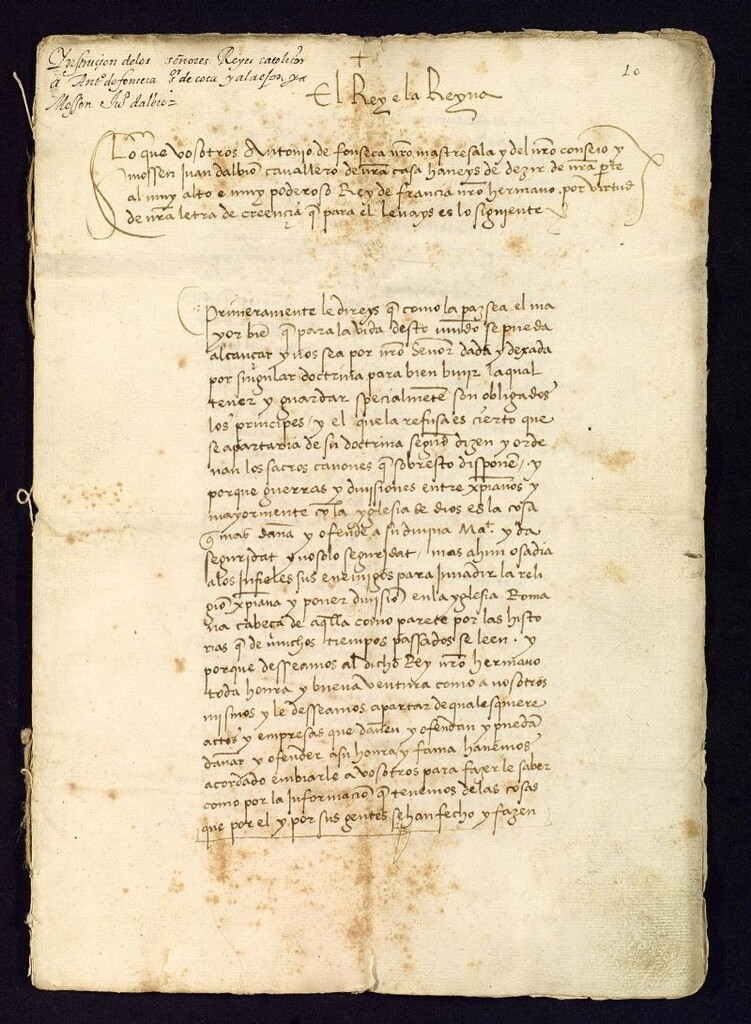 Instrucion delos señores Reyes catolicos
a Antº de fonseca sr de coca y alaejos, y a
Mossen Juº dalbio
+
10
El Rey e la Reyna
Lo que vosotros Antonio de fonseca nr̃o mastresala y del nr̃o consejo y
mossen Juan dalbiõ cavallero de nr̃a casa haueys de dezir de nr̃a p̃te
al muy alto e muy poderoso Rey de francia nr̃o hermano por virtud
de nr̃a letra de creencia q̃ para el leuays es lo siguiente
Primeramente le direys q̃ como la paz sea el ma
yor biẽ q̃ para la vida desto mũdo se pueda
alcançar y nos sea por nr̃o Señor dada y dexada
por singular doctrina para bien biuir laqual
tener y guardar specialmẽte son obligados
los principes / y el que la refusa es cierto que
se apartaria de su doctrina segũd dizen y orde
nan los sacros canones q̃ sobresto disponẽ / y
porque guerras y diuisiones entre xp̃ianos y
mayormente cõ la yglesia de dios es la cosa
q̃ mas daña y ofende a su diuina Mat. y da
seguridat y no solo seguridat / mas ahun osadia
alos Infieles sus enemigos para Inuadir la reli
giõ xp̃iana y poner diuisiõ en la yglesia Roma
na cabeça de aq̃lla como parece por las histo
rias q̃ de muchos tiempos passados se leen . y
porque desseamos al dicho Rey nr̃o hermano
toda honra y buena ventura como a nosotros
mismos y le desseamos apartar de qualesquiere
actos y empresas que dañen y ofendan y puedã
dañar y ofender a su honra y fama hauemos
acordado embiarle a vosotros para fazerle saber
como por la Informaciõ q̃ tenemos de las cosas
que por el y por sus gentes se han fecho y fazen